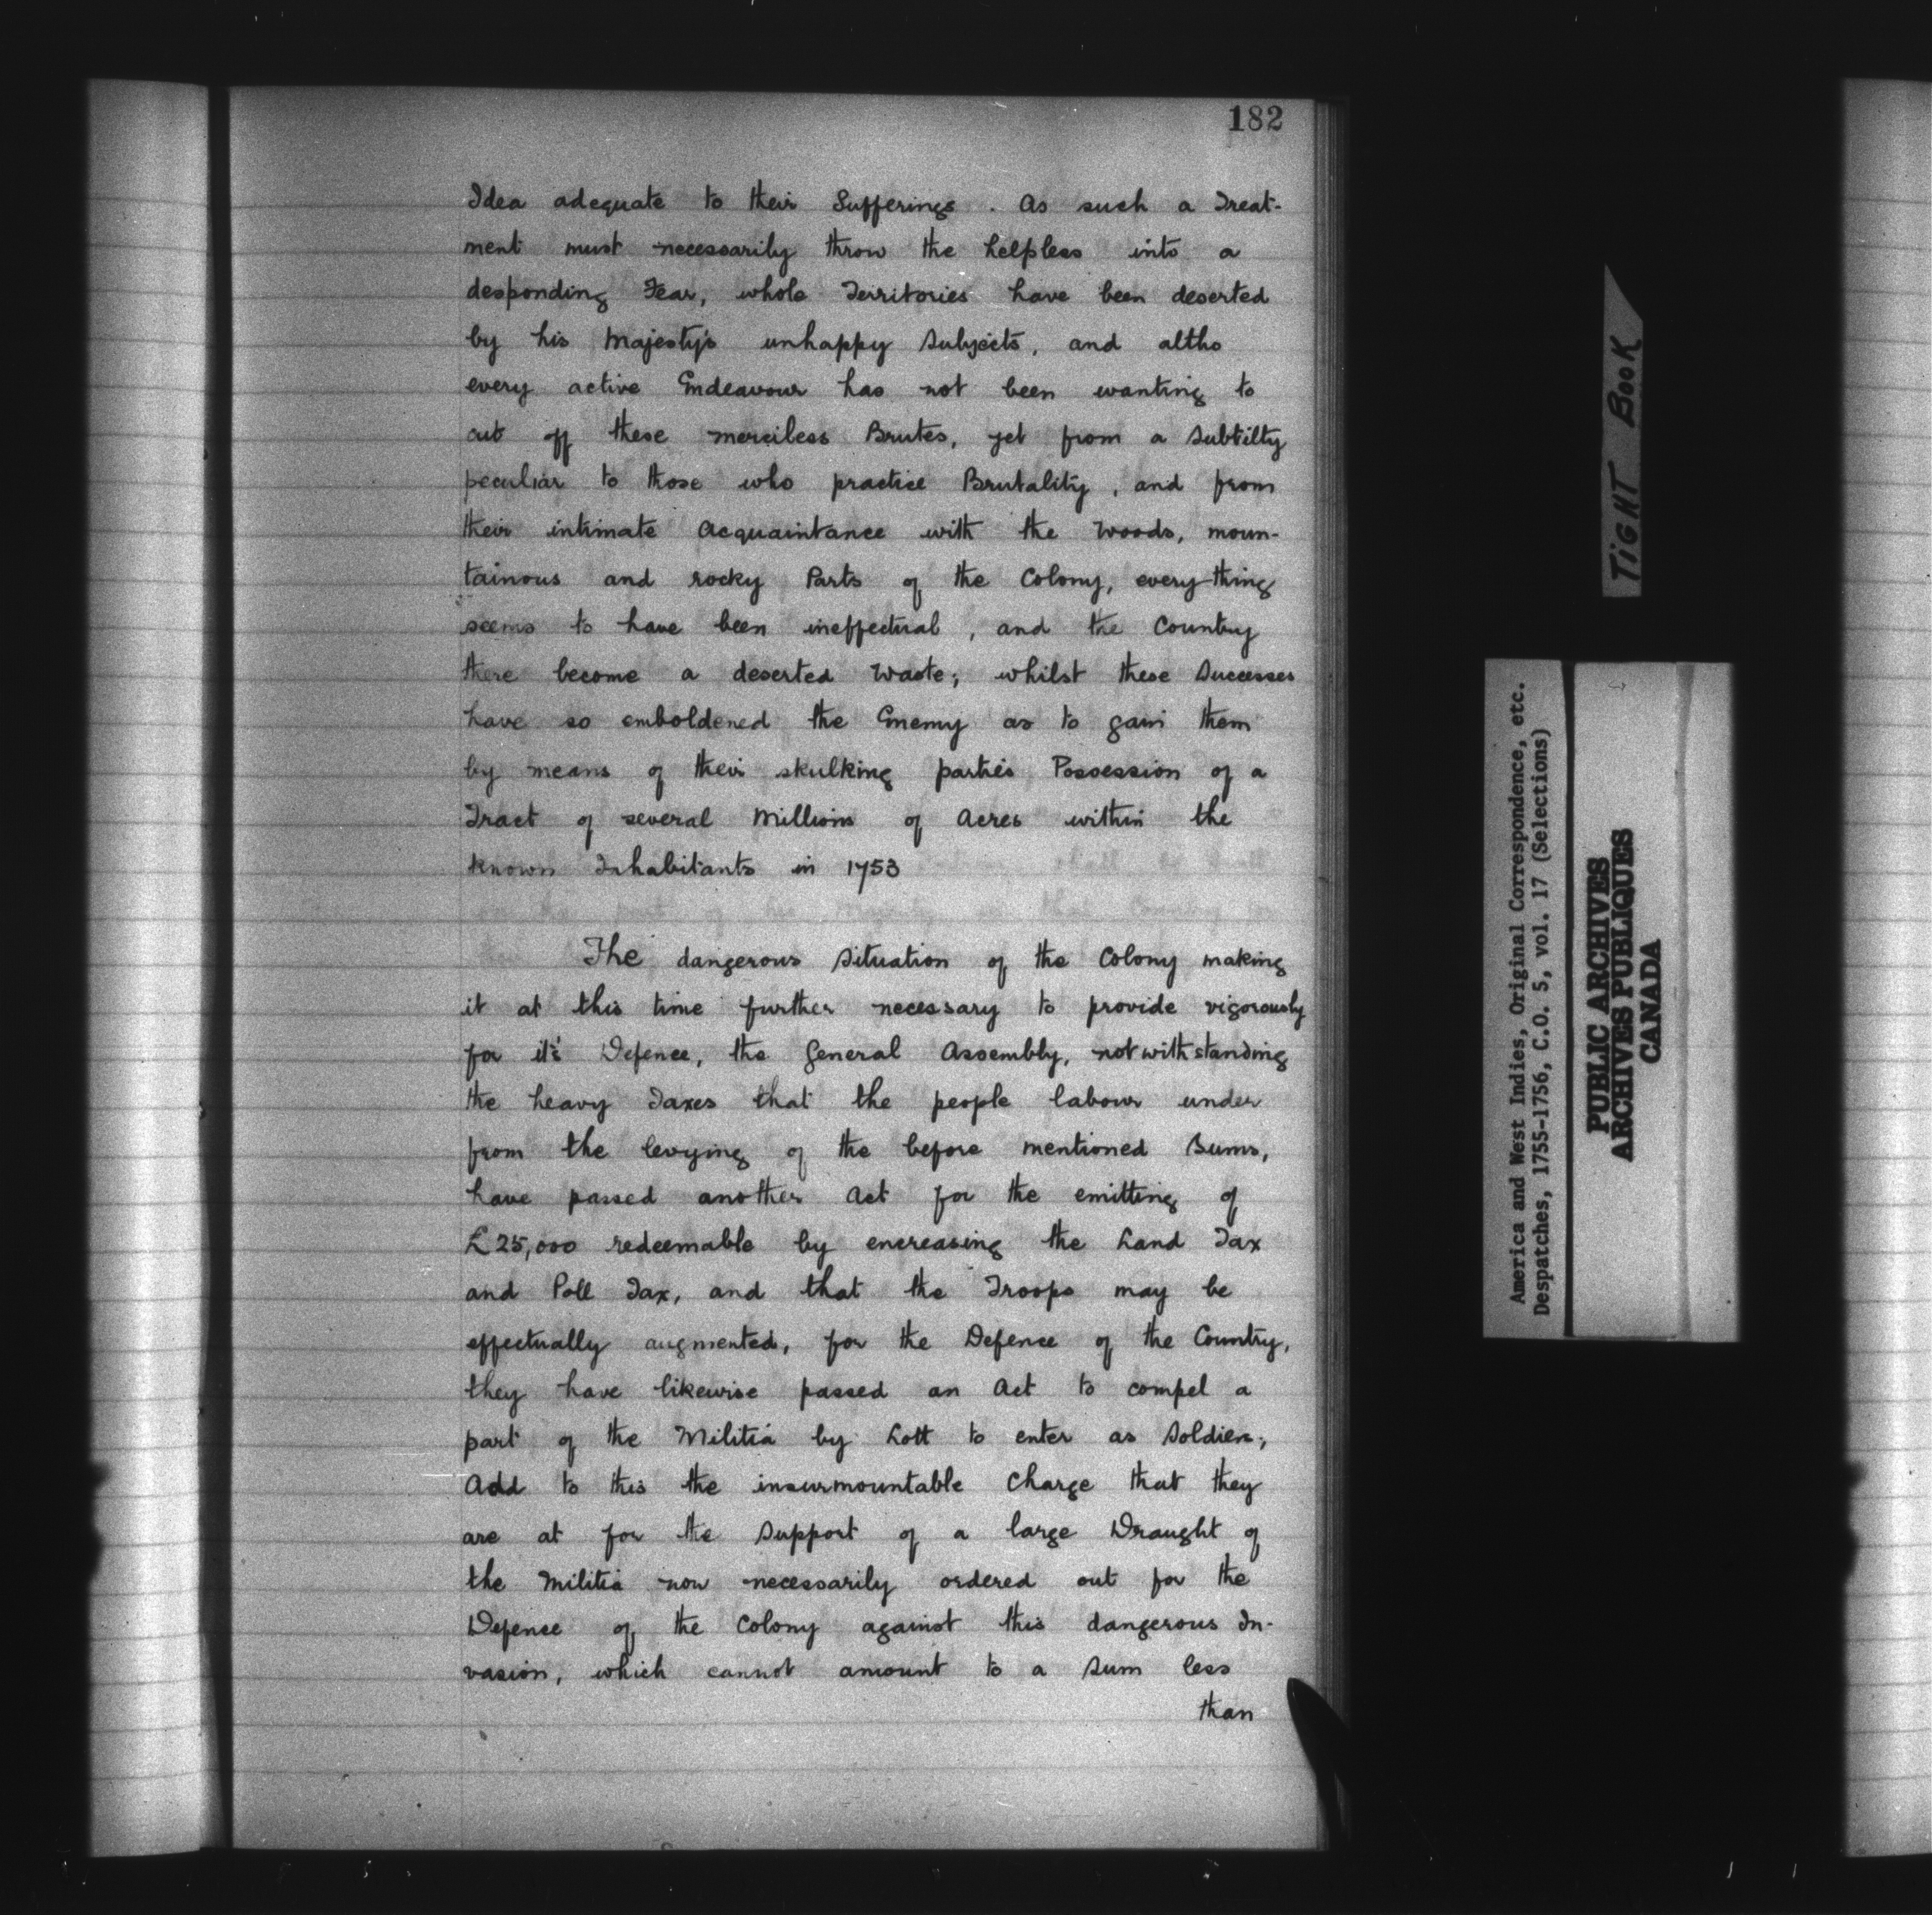 182
Idea adequate to their Sufferings. As such a Treat-
ment must necessarily throw the helpless into a
desponding Fear, whole Territories have been deserted
by his Majesty's unhappy Subjects, and altho
every active Endeavour has not been wanting to
cut off these merciless Brutes, yet from a Subtilty
peculiar to those who practice Brutality, and from
their intimate Acquaintance with the Woods, moun-
tainous and rocky Parts of the Colony, every thing
seems to have been ineffectual, and the Country
there become a deserted Waste; whilst these Successes
have so emboldened the Enemy as to gain them
by means of their skulking parties Possession of a
Tract of several Millions of Acres within the
known Inhabitants in 1753
The dangerous Situation of the Colony making
it at this time further necessary to provide vigorously
for it's Defence, the General Assembly, notwithstanding
the heavy Taxes that the people labour under
from the levying of the before mentioned Sums,
have passed another Act for the emitting of
£25,000 redeemable by encreasing the Land Tax
and Poll Tax, and that the Troops may be
effectually augmented, for the Defence of the Country,
they have likewise passed an Act to compel a
part of the Militia by Lott to enter as Soldiers;
Add to this the insurmountable Charge that they
are at for the Support of a large Draught of
the Militia now necessarily ordered out for the
Defence of the Colony against this dangerous In-
vasion, which cannot amount to a Sum less
than
TIGHT BOOK
America and West Indies, Original Correspondence, etc.
Despatches, 1755-1756, C.O. 5, vol. 17 (Selections)
PUBLIC ARCHIVES
ARCHIVES PUBLIQUES
CANADA